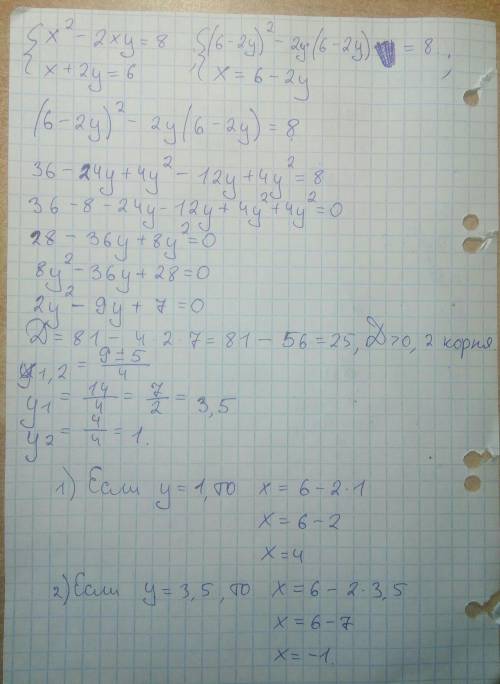 { x² - 2xy = 8   { (6-2y)² - 2y(6-2y) = 8
{ x + 2y = 6   { x = 6 - 2y ;
(6-2y)² - 2y(6-2y) = 8
36 - 24y + 4y² - 12y + 4y² = 8
36 - 8 - 24y - 12y + 4y² + 4y² = 0
28 - 36y + 8y² = 0
8y² - 36y + 28 = 0
2y² - 9y + 7 = 0
D = 81 - 4 2·7 = 81 - 56 = 25, D>0, 2 корня
y1,2 = 9±5/4
y1 = 14/4 = 7/2 = 3,5
y2 = 4/4 = 1.
1) Если y = 1, то x = 6 - 2·1
x = 6 - 2
x = 4
2) Если y = 3,5, то x = 6 - 2·3,5
x = 6 - 7
x = -1.